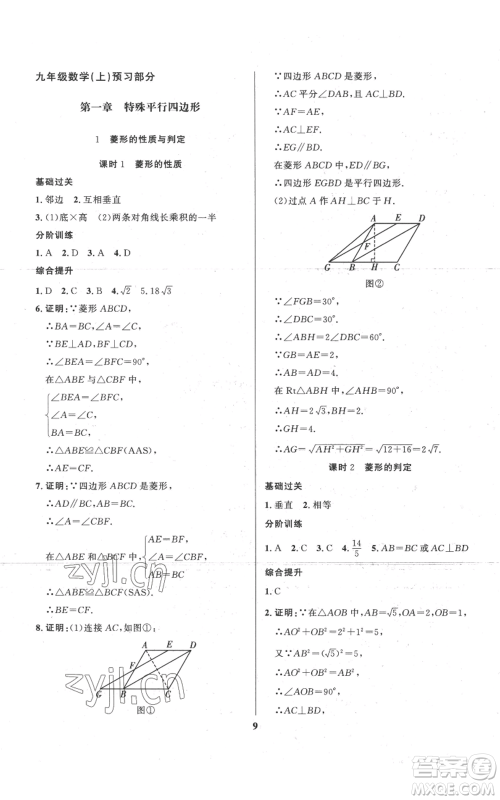 九年级数学(上)预习部分
第一章　特殊平行四边形
1　菱形的性质与判定
课时1　菱形的性质
基础过关
1. 邻边　2. 互相垂直
3. (1)底×高　(2)两条对角线长乘积的一半
分阶训练
1. A　2. D　3. A　4. D
综合提升
1. D　2. C　3. B　4. √2　5. 18√3
6. 证明:∵菱形 ABCD,
∴BA=BC,∠A=∠C.
∵BE⊥AD,BF⊥CD,
∴∠BEA=∠BFC=90°,
在△ABE 与△CBF 中,
{∠BEA=∠BFC,
∠A=∠C,
BA=BC,
∴△ABE≌△CBF(AAS),
∴AE=CF.
7. 证明:∵四边形 ABCD 是菱形,
∴AB∥CD,AB=CD,
∴∠ABF=∠CDE.
在△ABE 和△CDF 中,
{AB=CD,
∠ABF=∠CDE,
BF=DE,
∴△ABF≌△CDE(SAS),
∴BE=DF.
8. 证明:(1)连接 AC,如图①:
A E D
F
G B C
图①
∵四边形 ABCD 是菱形,
∴AB=AD,AC⊥BD.
∵BF=AE,
∴AF=DE,
∴EG∥BD.
在菱形 ABCD 中,AD∥BC,
∴四边形 EGBD 是平行四边形.
(2)过点 A 作 AH⊥BC.
A E D
F
G B H C
图②
∵∠FGB=30°,
∴∠DBC=30°,
∴∠ABH=2∠DBC=60°.
在 Rt△ABH 中,∠AHB=90°,
∴AH=2√3,BH=2,
∴GH=4,
∴AG=√(AH²+GH²)=√(12+16)=2√7.
课时2　菱形的判定
基础过关
1. 垂直　2. 相等
分阶训练
1. A　2. B　3. C　4. 14/5　5. AB=BC 或 AC⊥BD
综合提升
1. C
2. 证明:∵在△AOB 中,AB=√5,OA=2,
OB=1,
∴AO²+OB²=2²+1²=5.
又∵AB²=(√5)²=5,
∴AO²+OB²=AB²,
∴∠AOB=90°,
∴AC⊥BD,
∴四边形 ABCD 是菱形.
9